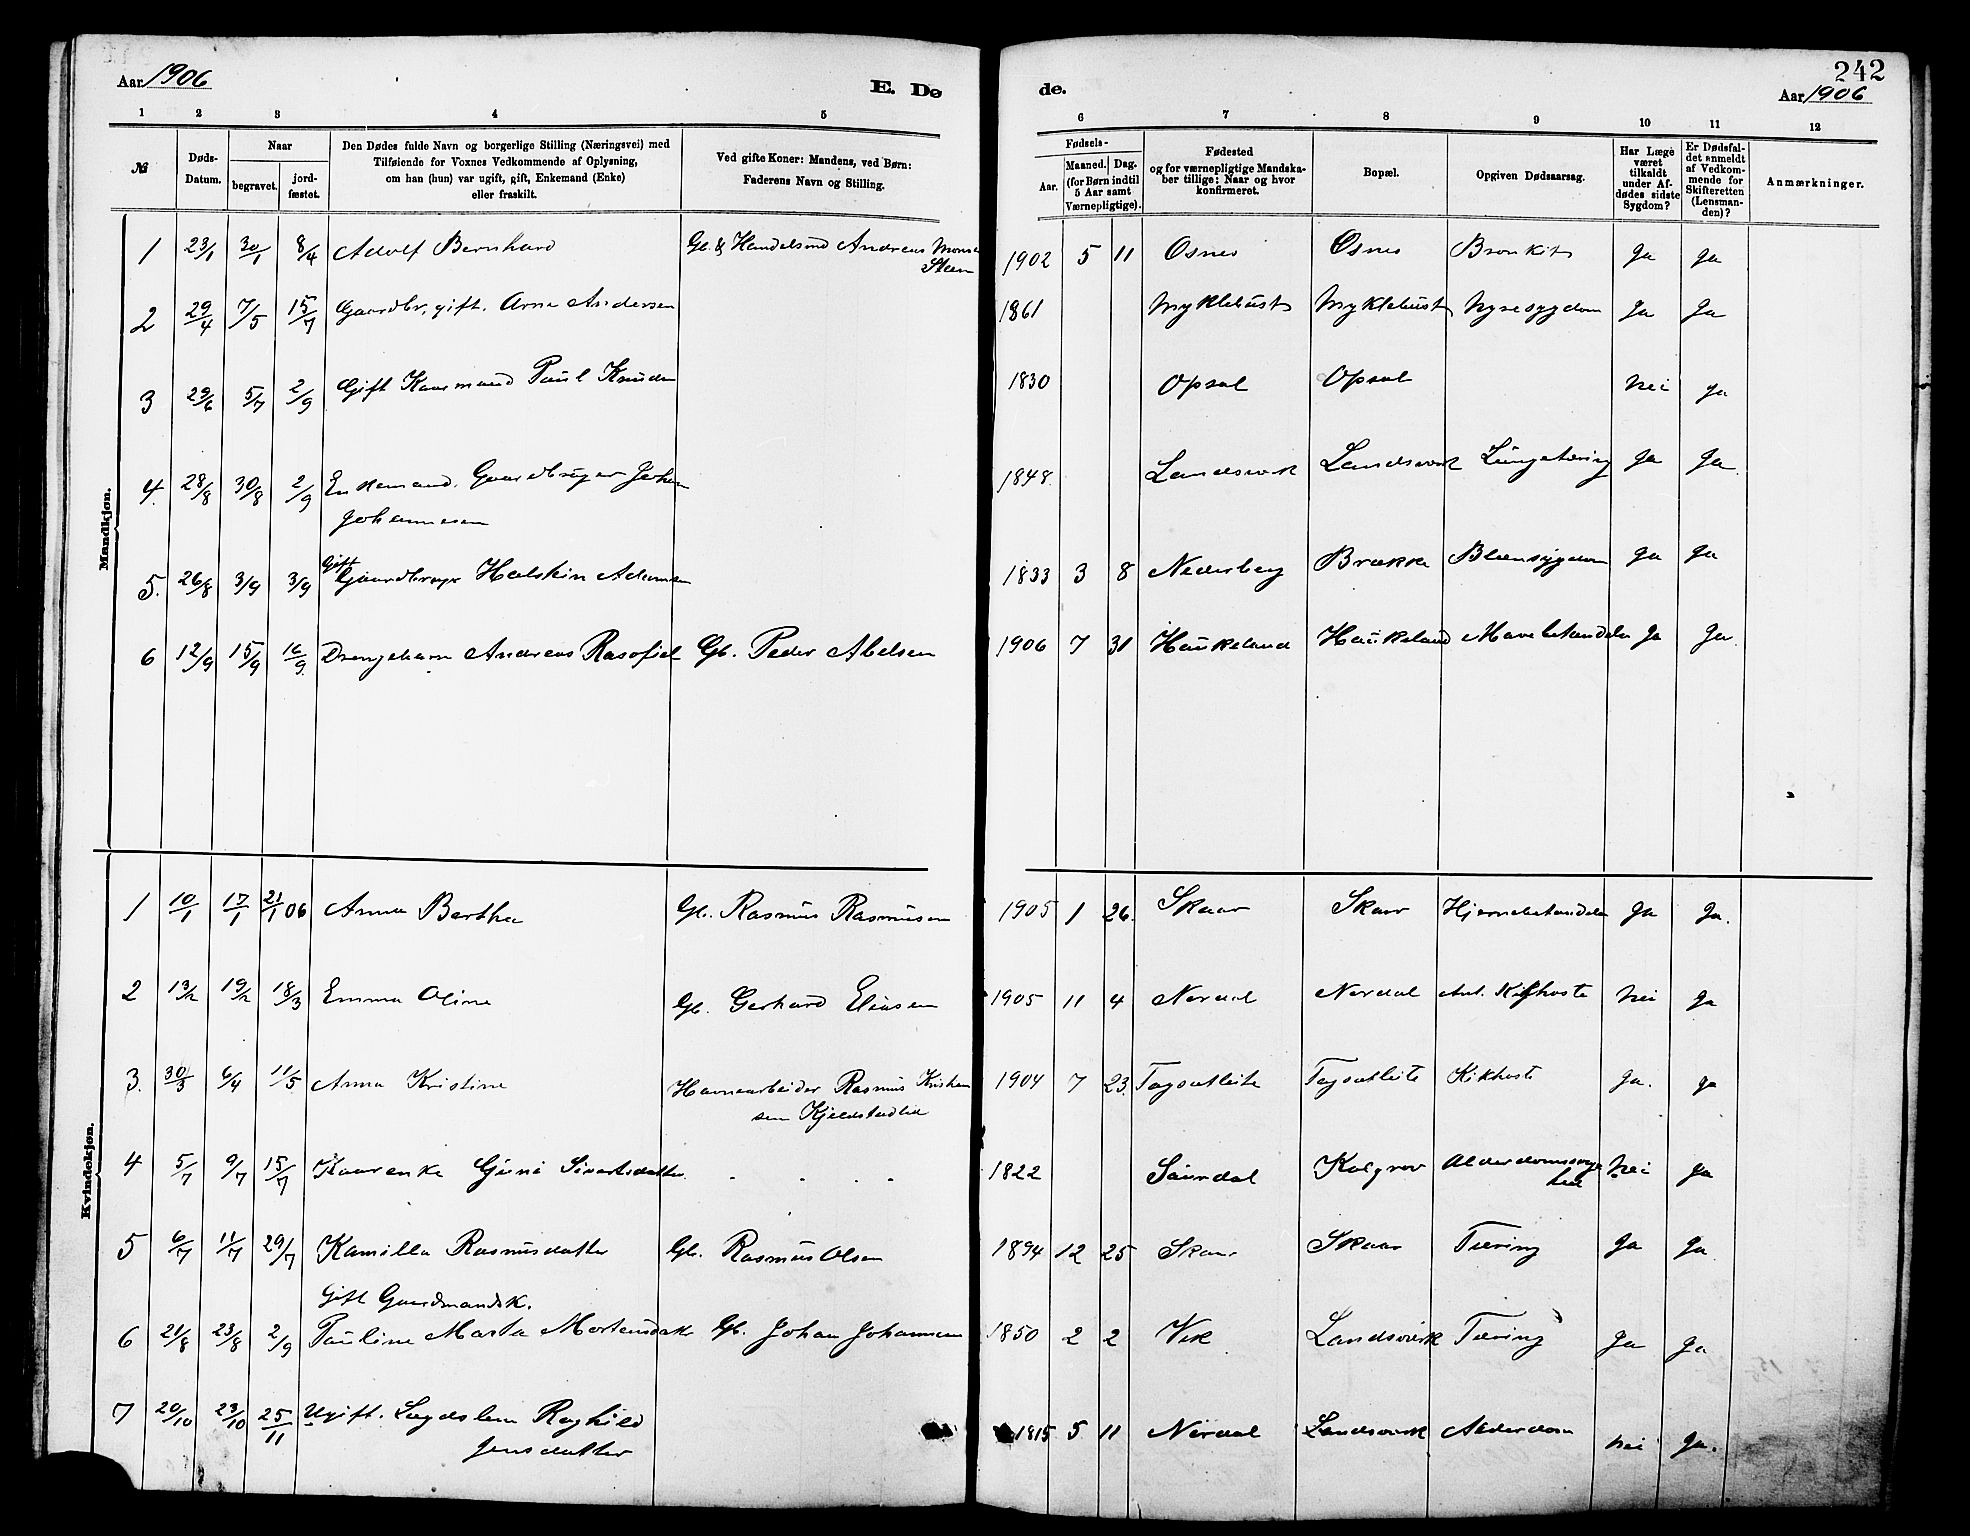 Aar 1906
E. Dø
de.
242
Aar 1906
1 2 3 4 5 6 7 8 9 10 11 12
№
Døds-Datum.
Naar
begravet.
jord-fæstet.
Den Dødes fulde Navn og borgerlige Stilling (Næringsvei) med
Tilføiende for Voxnes Vedkommende af Oplysning,
om han (hun) var ugift, gift, Enkemand (Enke)
eller fraskilt.
Ved gifte Koner: Mandens, ved Børn:
Faderens Navn og Stilling.
Fødsels-
Aar.
Maaned. Dag.
(for Børn indtil
5 Aar samt
Værnepligtige).
Fødested
og for værnepligtige Mandska-
ber tillige: Naar og hvor
konfirmeret.
Bopæl.
Opgiven Dødsaarsag.
Har Læge
været
tilkaldt
under Af-
dødes sidste
Sygdom?
Er Dødsfal-
det anmeldt
af Vedkom-
mende for
Skifteretten
(Lensman-
den)?
Anmærkninger.
Mandkjøn.
1 23/1 30/1 8/4 Adolf Bernhard Gb. & Handelsmd Andreas Monsen Steen 1902 5 11 Osnes Osnes Bronkit Ja Ja
2 29/4 7/5 15/7 Gaardbr, gift. Arne Andersen 1861 Myklebust Myklebust Nyresygdom Ja Ja
3 29/6 5/7 2/9 Gift Kaarmand Paul Knudsen 1830 Opsal Opsal Nei Ja
4. 28/8 30/8 2/9 Enkemand. Gaardbruger Johan
Johannesen 1848. Landsvik Landsvik Lungetæring Ja Ja.
5. 26/8 3/9 3/9 Gift Gaardbruger Halstein Adamsen 1833 3 8 Nederberg Brække Blæresygdom Ja Ja
6 12/9 15/9 16/9. Drengebarn Andreas Gb. Peder Abelsen 1906 7 31 Haukeland Haukeland Mavebetændelse Ja Ja.
Kvindekjøn.
1 10/1 17/1 21/1 06 Anna Bertha Gb. Rasmus Rasmusen 1905 1 26. Skaar Skaar Hjernebetændelse Ja Ja.
2 13/2 19/2 18/3 Emma Oline Gb. Gerhard Eliasen 1905 11 4 Nordal Nordal Ant. Kikhoste Nei Ja
3. 30/3 6/4 11/5 Anna Kristine Havnearbeider Rasmus Kristian
sen Kjeldstadlid 1904 7 23. Tagsatleite Tagsatleite Kikhoste Ja. Ja
4 5/7 9/7 15/7 Kaarenke Guni Sivertsdatter . . . . 1822 Saurdal Kalgrov Alderdomssvag
hed Nei Ja
5 6/7 11/7 29/7 Kamilla Rasmusdatter Gb. Rasmus Olsen 1894 12 25 Skaar Skaar Tæring Ja Ja
6 21/8 23/8 2/9 Gift Gaardmandsk.
Pauline Marta Mortensdatr Gb. Johan Johannesen 1850 2 2 Vik Landsvik Tæring Ja Ja
7 20/10 23/10 25/11 Ugift. Lægdslem Raghild
Jensdatter 1815 5 11 Nordal Landsvik Alderdom Nei Ja.